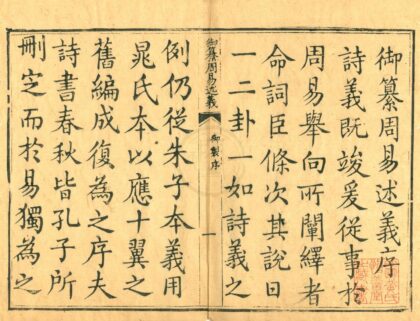 御纂周易述義序
詩義既竣爰從事於
周易舉向所闡繹者
命詞臣條次其說日
一二卦一如詩義之
御纂周易述義
御製序
一
例仍從朱子本義用
晁氏本以應十翼之
舊編成復為之序夫
詩書春秋皆孔子所
刪定而於易獨為之